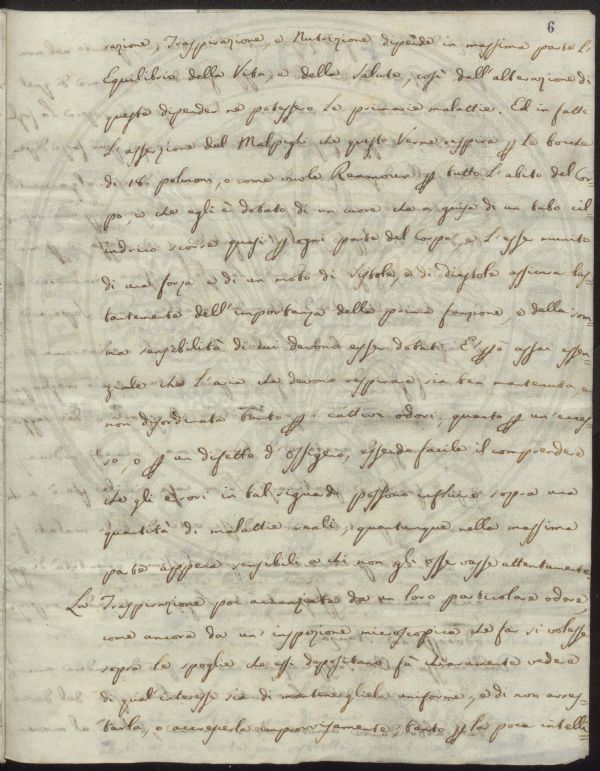 6
razione, Traspirazione, e Nutrizione dipende in massima parte l'
Equilibrio della Vita, e della Salute, così dall'alterazione di
queste dipender ne potessero le primarie malattie. Ed in fatti
L'asserzione del Malpighi che questo Verme respira p le bocche
di 18. polmoni, o come vuole Reaumour p tutto l'abito del Cor=
po, e che egli è dotato di un cuore che a guisa di un tubo cil=
indrico scorre quasi p ogni parte del Corpo, e l'esse munito
di una forza e di un moto di sistole, e di diastole assicura bas=
tantemente dell'importanza della prima funzione, e della som=
ma sensibilità di cui devono esser dotati. E' p ciò assai essen=
ziale che l'aria che devono respirare sia ben mantenuta, e
non disordinata tanto p i cattivi odori, quanto p un'ecces=
so, o p un difetto d'ossigeno, essendo facile il comprendere
che gli errori in tal riguardo possono influire sopra una
quantità di malattie reali, quantunque nella massima
parte appena sensibili a chi non gli osservasse attentamente.
La Traspirazione poi annunziata da un loro particolare odore,
come ancora da un'inspezione microscopica che far si volesse
sopra le spoglie che essi depositano, fà chiaramente vedere
di qual'interesse sia di mantenergliela uniforme, e di non arres=
tarla, o accrescerla improvvisamente, tanto p la poca intelli=